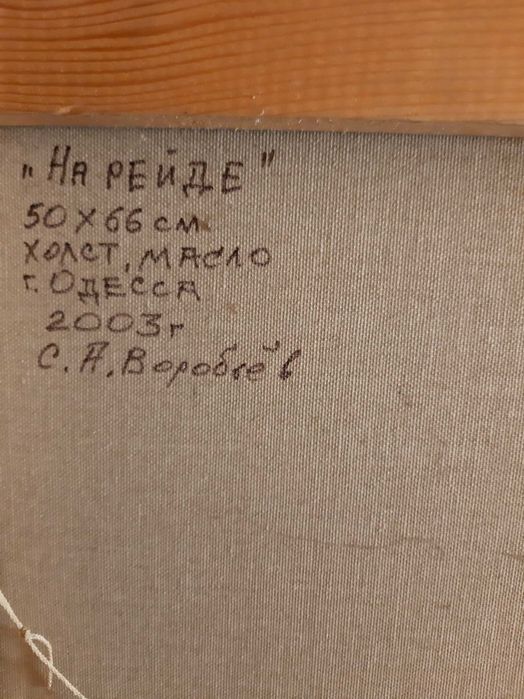 "На рейде"
50 x 66 см.
холст, масло
г. Одесса
2003 г
С. А. Воробьёв